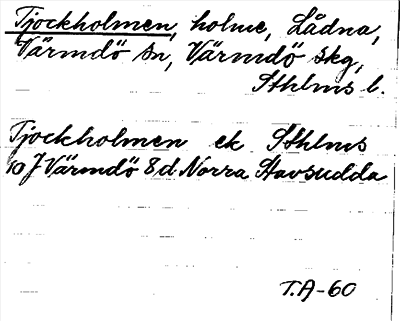 Tjockholmen, holme, Lådna,
Värmdö sn, Värmdö skg,
Sthlms l.
Tjockholmen ek Sthlms
10 J Värmdö 8 d Norra Stavsudda
T.A-60